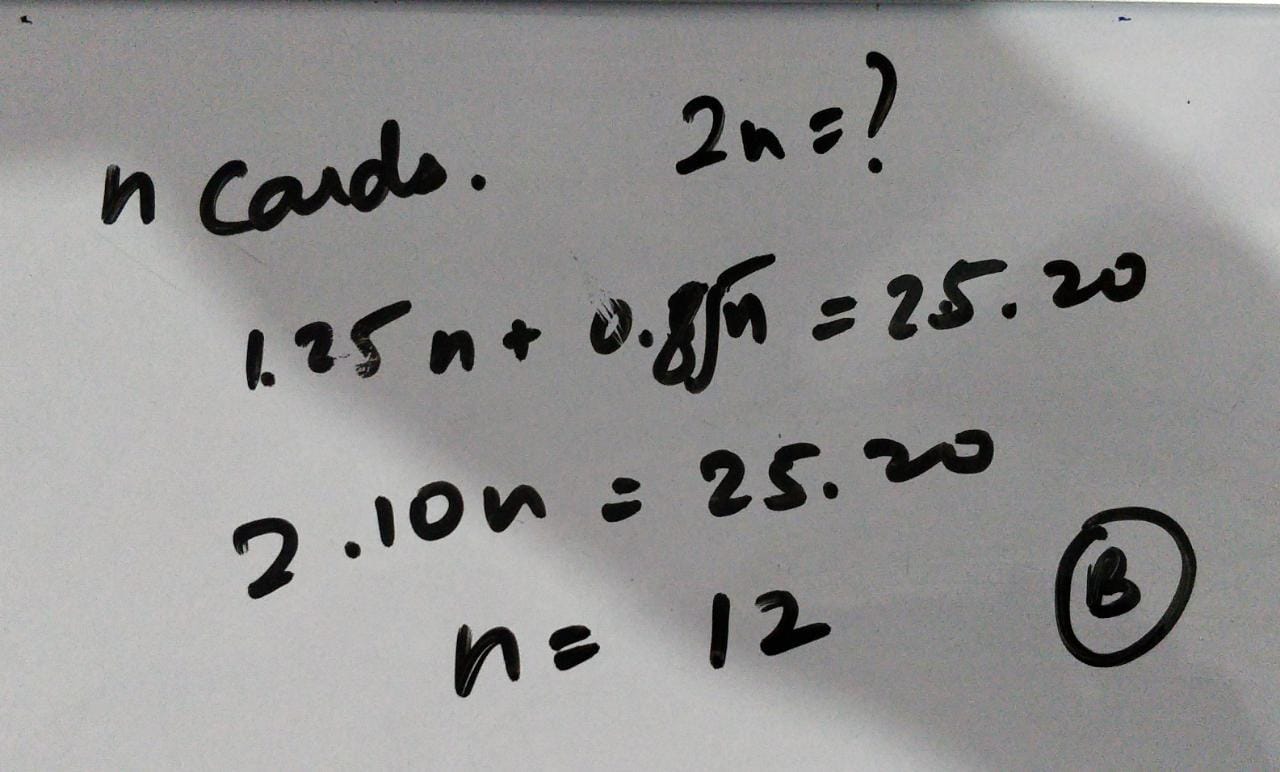 n Cards. 2n=?
1.25n+ 0.85n = 25.20
2.10n = 25.20
n= 12
B